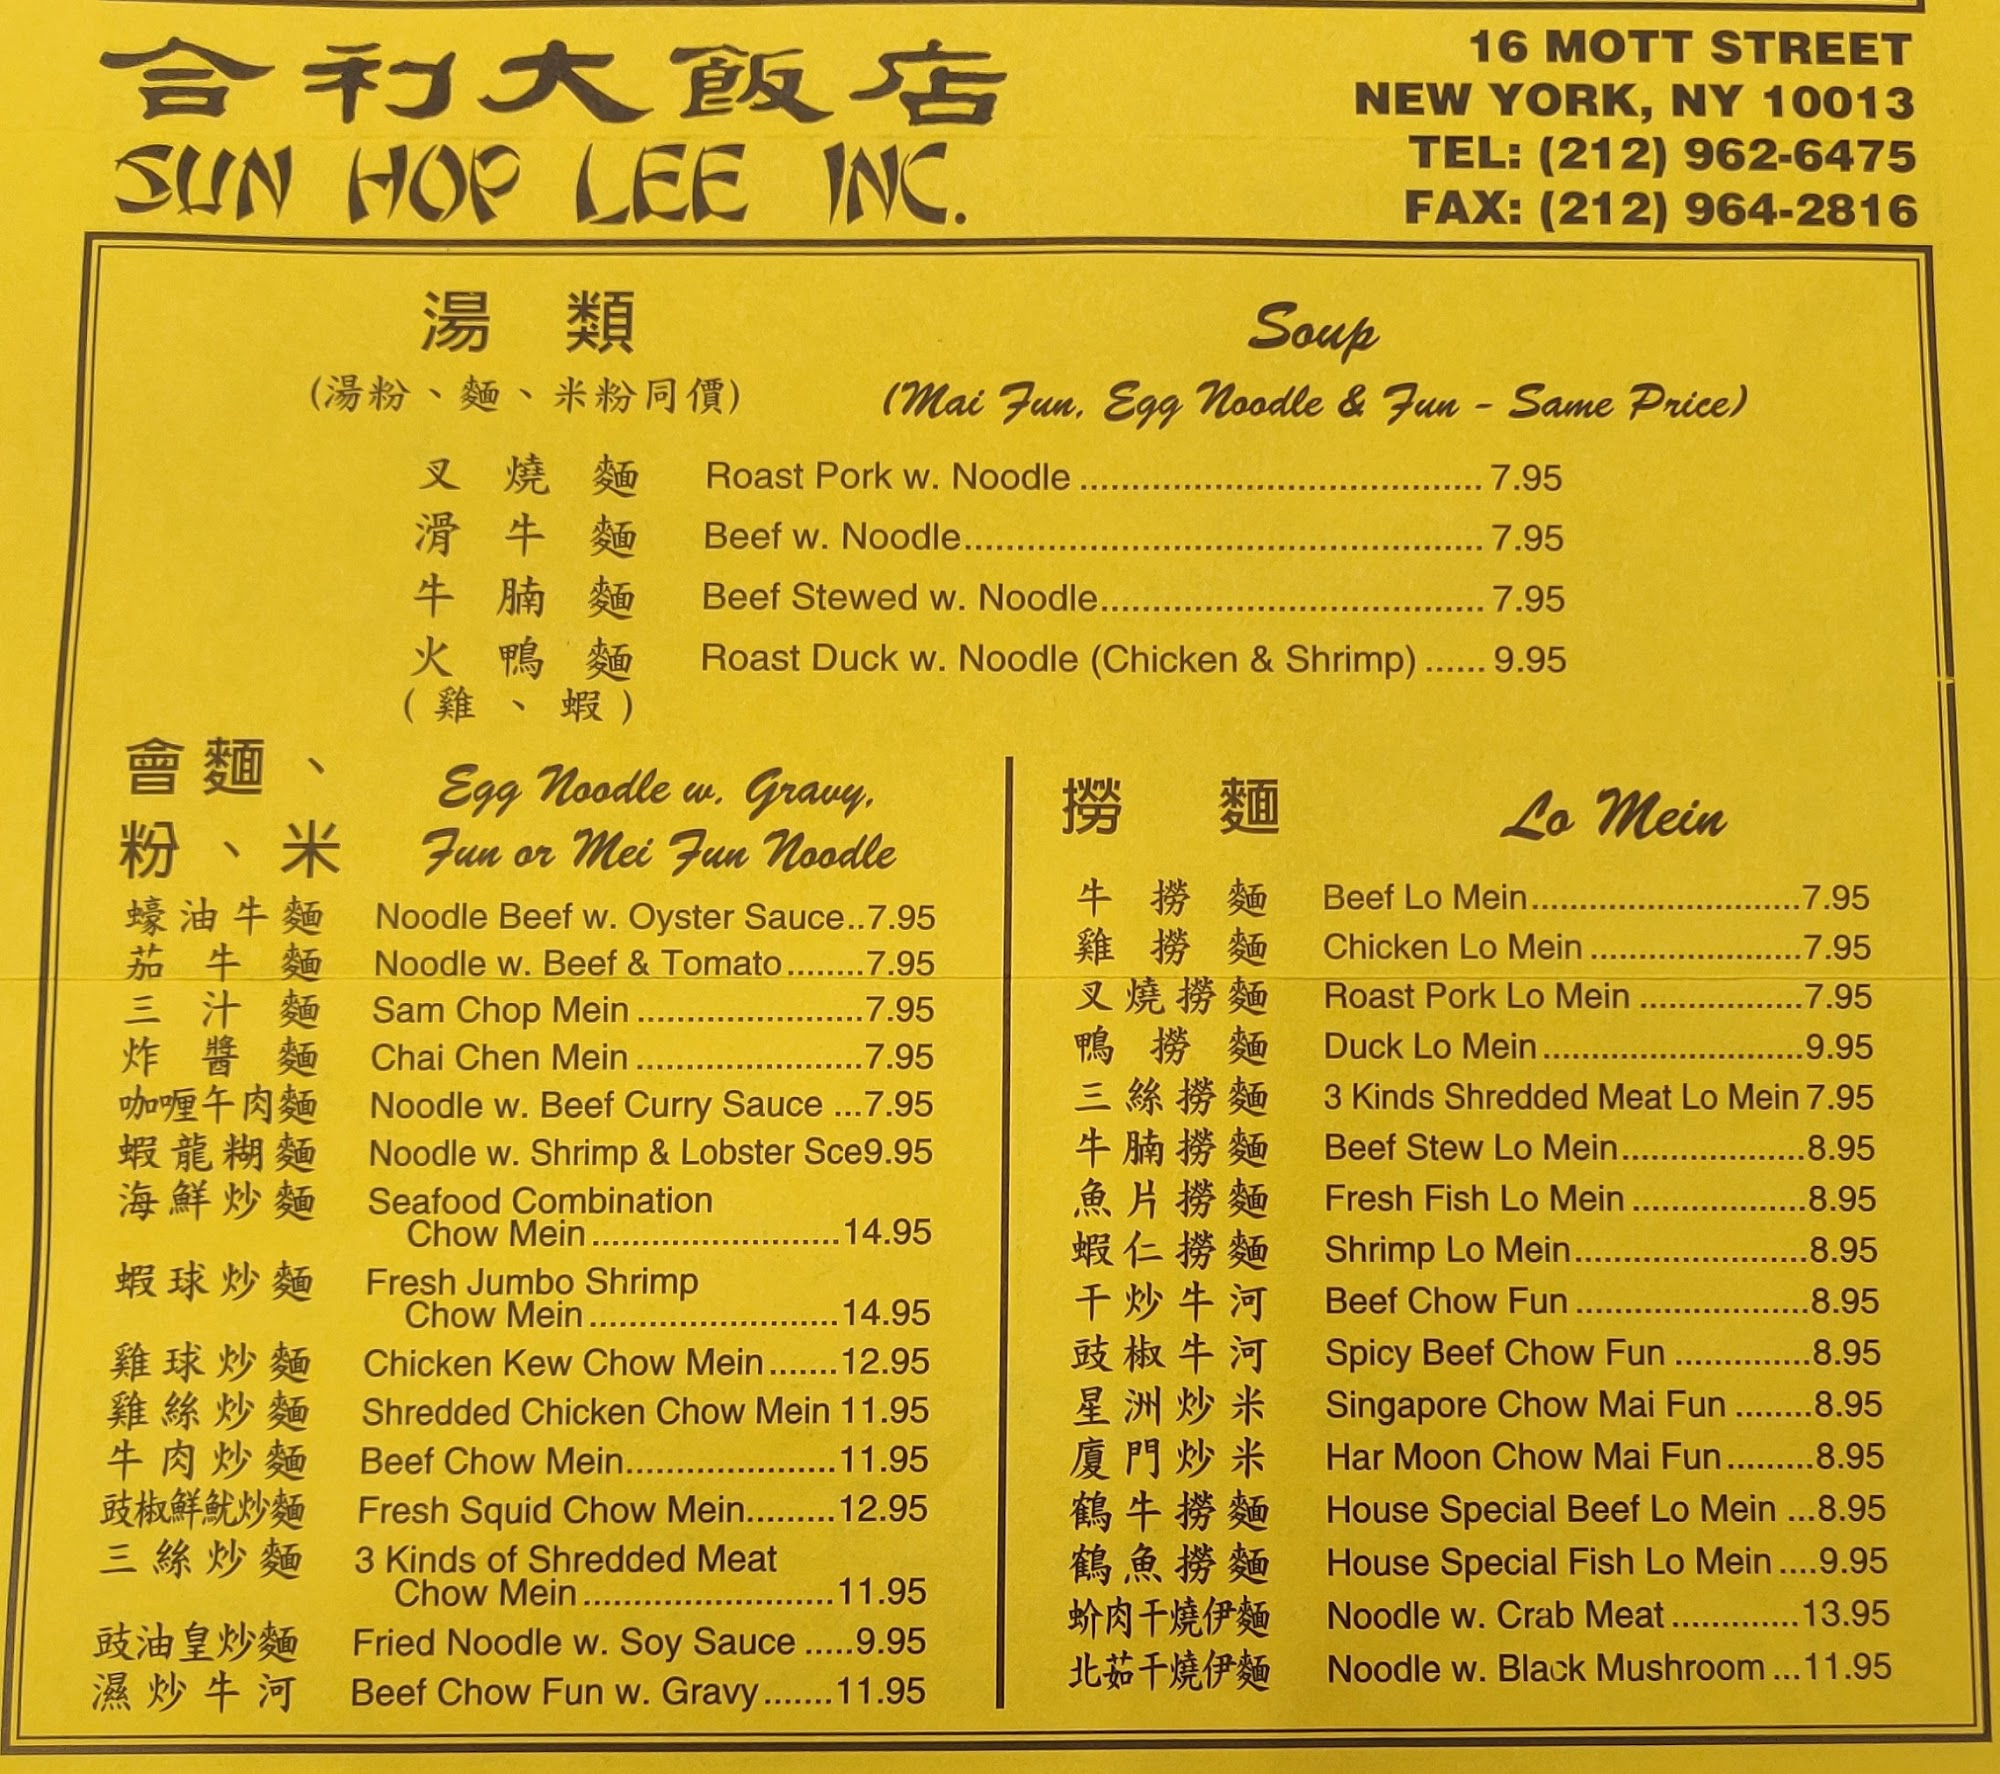 合利大飯店
SUN HOP LEE INC.
16 MOTT STREET
NEW YORK, NY 10013
TEL: (212) 962-6475
FAX: (212) 964-2816
湯類 Soup
(湯粉、麵、米粉同價) (Mai Fun, Egg Noodle & Fun - Same Price)
叉燒麵 Roast Pork w. Noodle 7.95
滑牛麵 Beef w. Noodle 7.95
牛腩麵 Beef Stewed w. Noodle 7.95
火鴨麵 Roast Duck w. Noodle (Chicken & Shrimp) 9.95
(雞、蝦)
會麵、
粉、米
Egg Noodle w. Gravy,
Fun or Mei Fun Noodle
蠔油牛麵 Noodle Beef w. Oyster Sauce..7.95
茄牛麵 Noodle w. Beef & Tomato 7.95
三汁麵 Sam Chop Mein 7.95
炸醬麵 Chai Chen Mein 7.95
咖喱午肉麵 Noodle w. Beef Curry Sauce ...7.95
蝦龍糊麵 Noodle w. Shrimp & Lobster Sce9.95
海鮮炒麵 Seafood Combination
Chow Mein 14.95
蝦球炒麵 Fresh Jumbo Shrimp
Chow Mein 14.95
雞球炒麵 Chicken Kew Chow Mein 12.95
雞絲炒麵 Shredded Chicken Chow Mein 11.95
牛肉炒麵 Beef Chow Mein 11.95
豉椒鮮魷炒麵 Fresh Squid Chow Mein 12.95
三絲炒麵 3 Kinds of Shredded Meat
Chow Mein 11.95
豉油皇炒麵 Fried Noodle w. Soy Sauce 9.95
濕炒牛河 Beef Chow Fun w. Gravy 11.95
撈麵 Lo Mein
牛撈麵 Beef Lo Mein 7.95
雞撈麵 Chicken Lo Mein 7.95
叉燒撈麵 Roast Pork Lo Mein 7.95
鴨撈麵 Duck Lo Mein 9.95
三絲撈麵 3 Kinds Shredded Meat Lo Mein 7.95
牛腩撈麵 Beef Stew Lo Mein 8.95
魚片撈麵 Fresh Fish Lo Mein 8.95
蝦仁撈麵 Shrimp Lo Mein 8.95
干炒牛河 Beef Chow Fun 8.95
豉椒牛河 Spicy Beef Chow Fun 8.95
星洲炒米 Singapore Chow Mai Fun 8.95
廈門炒米 Har Moon Chow Mai Fun 8.95
鶴牛撈麵 House Special Beef Lo Mein ...8.95
鶴魚撈麵 House Special Fish Lo Mein ....9.95
蚧肉干燒伊麵 Noodle w. Crab Meat 13.95
北菇干燒伊麵 Noodle w. Black Mushroom ...11.95